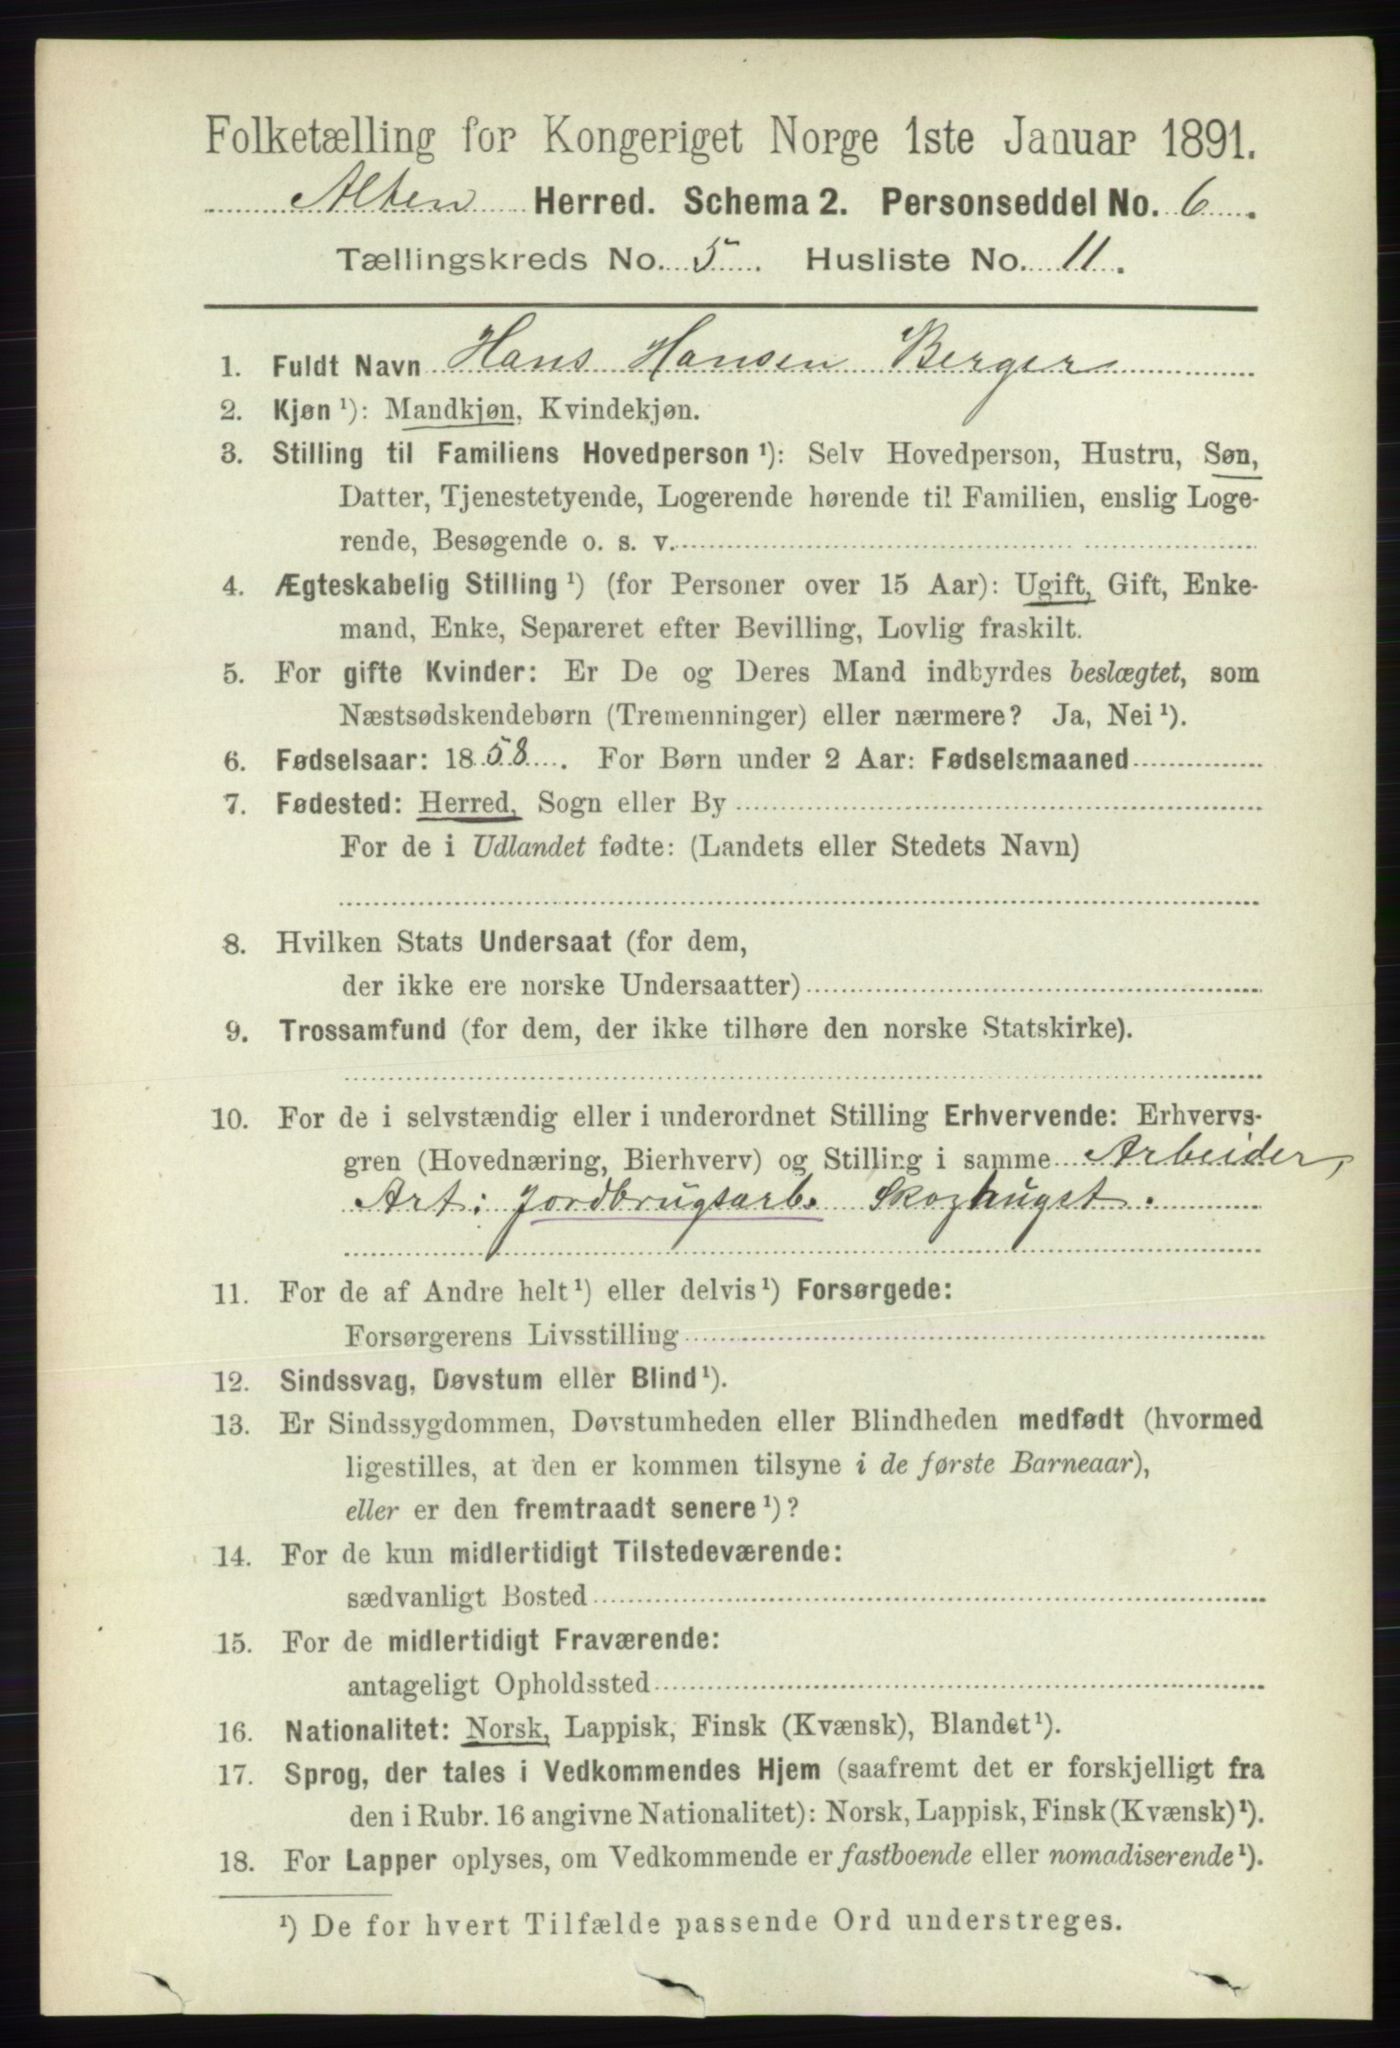 Folketælling for Kongeriget Norge 1ste Januar 1891.
Alten Herred. Schema 2. Personseddel No. 6.
Tællingskreds No. 5. Husliste No. 11.
1. Fuldt Navn Hans Hansen Berger
2. Kjøn ¹): Mandkjøn, Kvindekjøn.
3. Stilling til Familiens Hovedperson ¹): Selv Hovedperson, Hustru, Søn,
Datter, Tjenestetyende, Logerende hørende til Familien, enslig Loge-
rende, Besøgende o. s. v.
4. Ægteskabelig Stilling ¹) (for Personer over 15 Aar): Ugift, Gift, Enke-
mand, Enke, Separeret efter Bevilling, Lovlig fraskilt.
5. For gifte Kvinder: Er De og Deres Mand indbyrdes beslægtet, som
Næstsødskendebørn (Tremenninger) eller nærmere? Ja, Nei ¹).
6. Fødselsaar: 1858. For Børn under 2 Aar: Fødselsmaaned
7. Fødested: Herred, Sogn eller By
For de i Udlandet fødte: (Landets eller Stedets Navn)
8. Hvilken Stats Undersaat (for dem,
der ikke ere norske Undersaatter)
9. Trossamfund (for dem, der ikke tilhøre den norske Statskirke).
10. For de i selvstændig eller i underordnet Stilling Erhvervende: Erhvervs-
gren (Hovednæring, Bierhverv) og Stilling i samme Arbeider,
Art: Jordbrugsarb. Skozhugst.
11. For de af Andre helt ¹) eller delvis ¹) Forsørgede:
Forsørgerens Livsstilling
12. Sindssvag, Døvstum eller Blind ¹).
13. Er Sindssygdommen, Døvstumheden eller Blindheden medfødt (hvormed
ligestilles, at den er kommen tilsyne i de første Barneaar),
eller er den fremtraadt senere ¹)?
14. For de kun midlertidigt Tilstedeværende:
sædvanligt Bosted
15. For de midlertidigt Fraværende:
antageligt Opholdssted
16. Nationalitet: Norsk, Lappisk, Finsk (Kvænsk), Blandet ¹).
17. Sprog, der tales i Vedkommendes Hjem (saafremt det er forskjelligt fra
den i Rubr. 16 angivne Nationalitet): Norsk, Lappisk, Finsk (Kvænsk) ¹).
18. For Lapper oplyses, om Vedkommende er fastboende eller nomadiserende ¹).
¹) De for hvert Tilfælde passende Ord understreges.